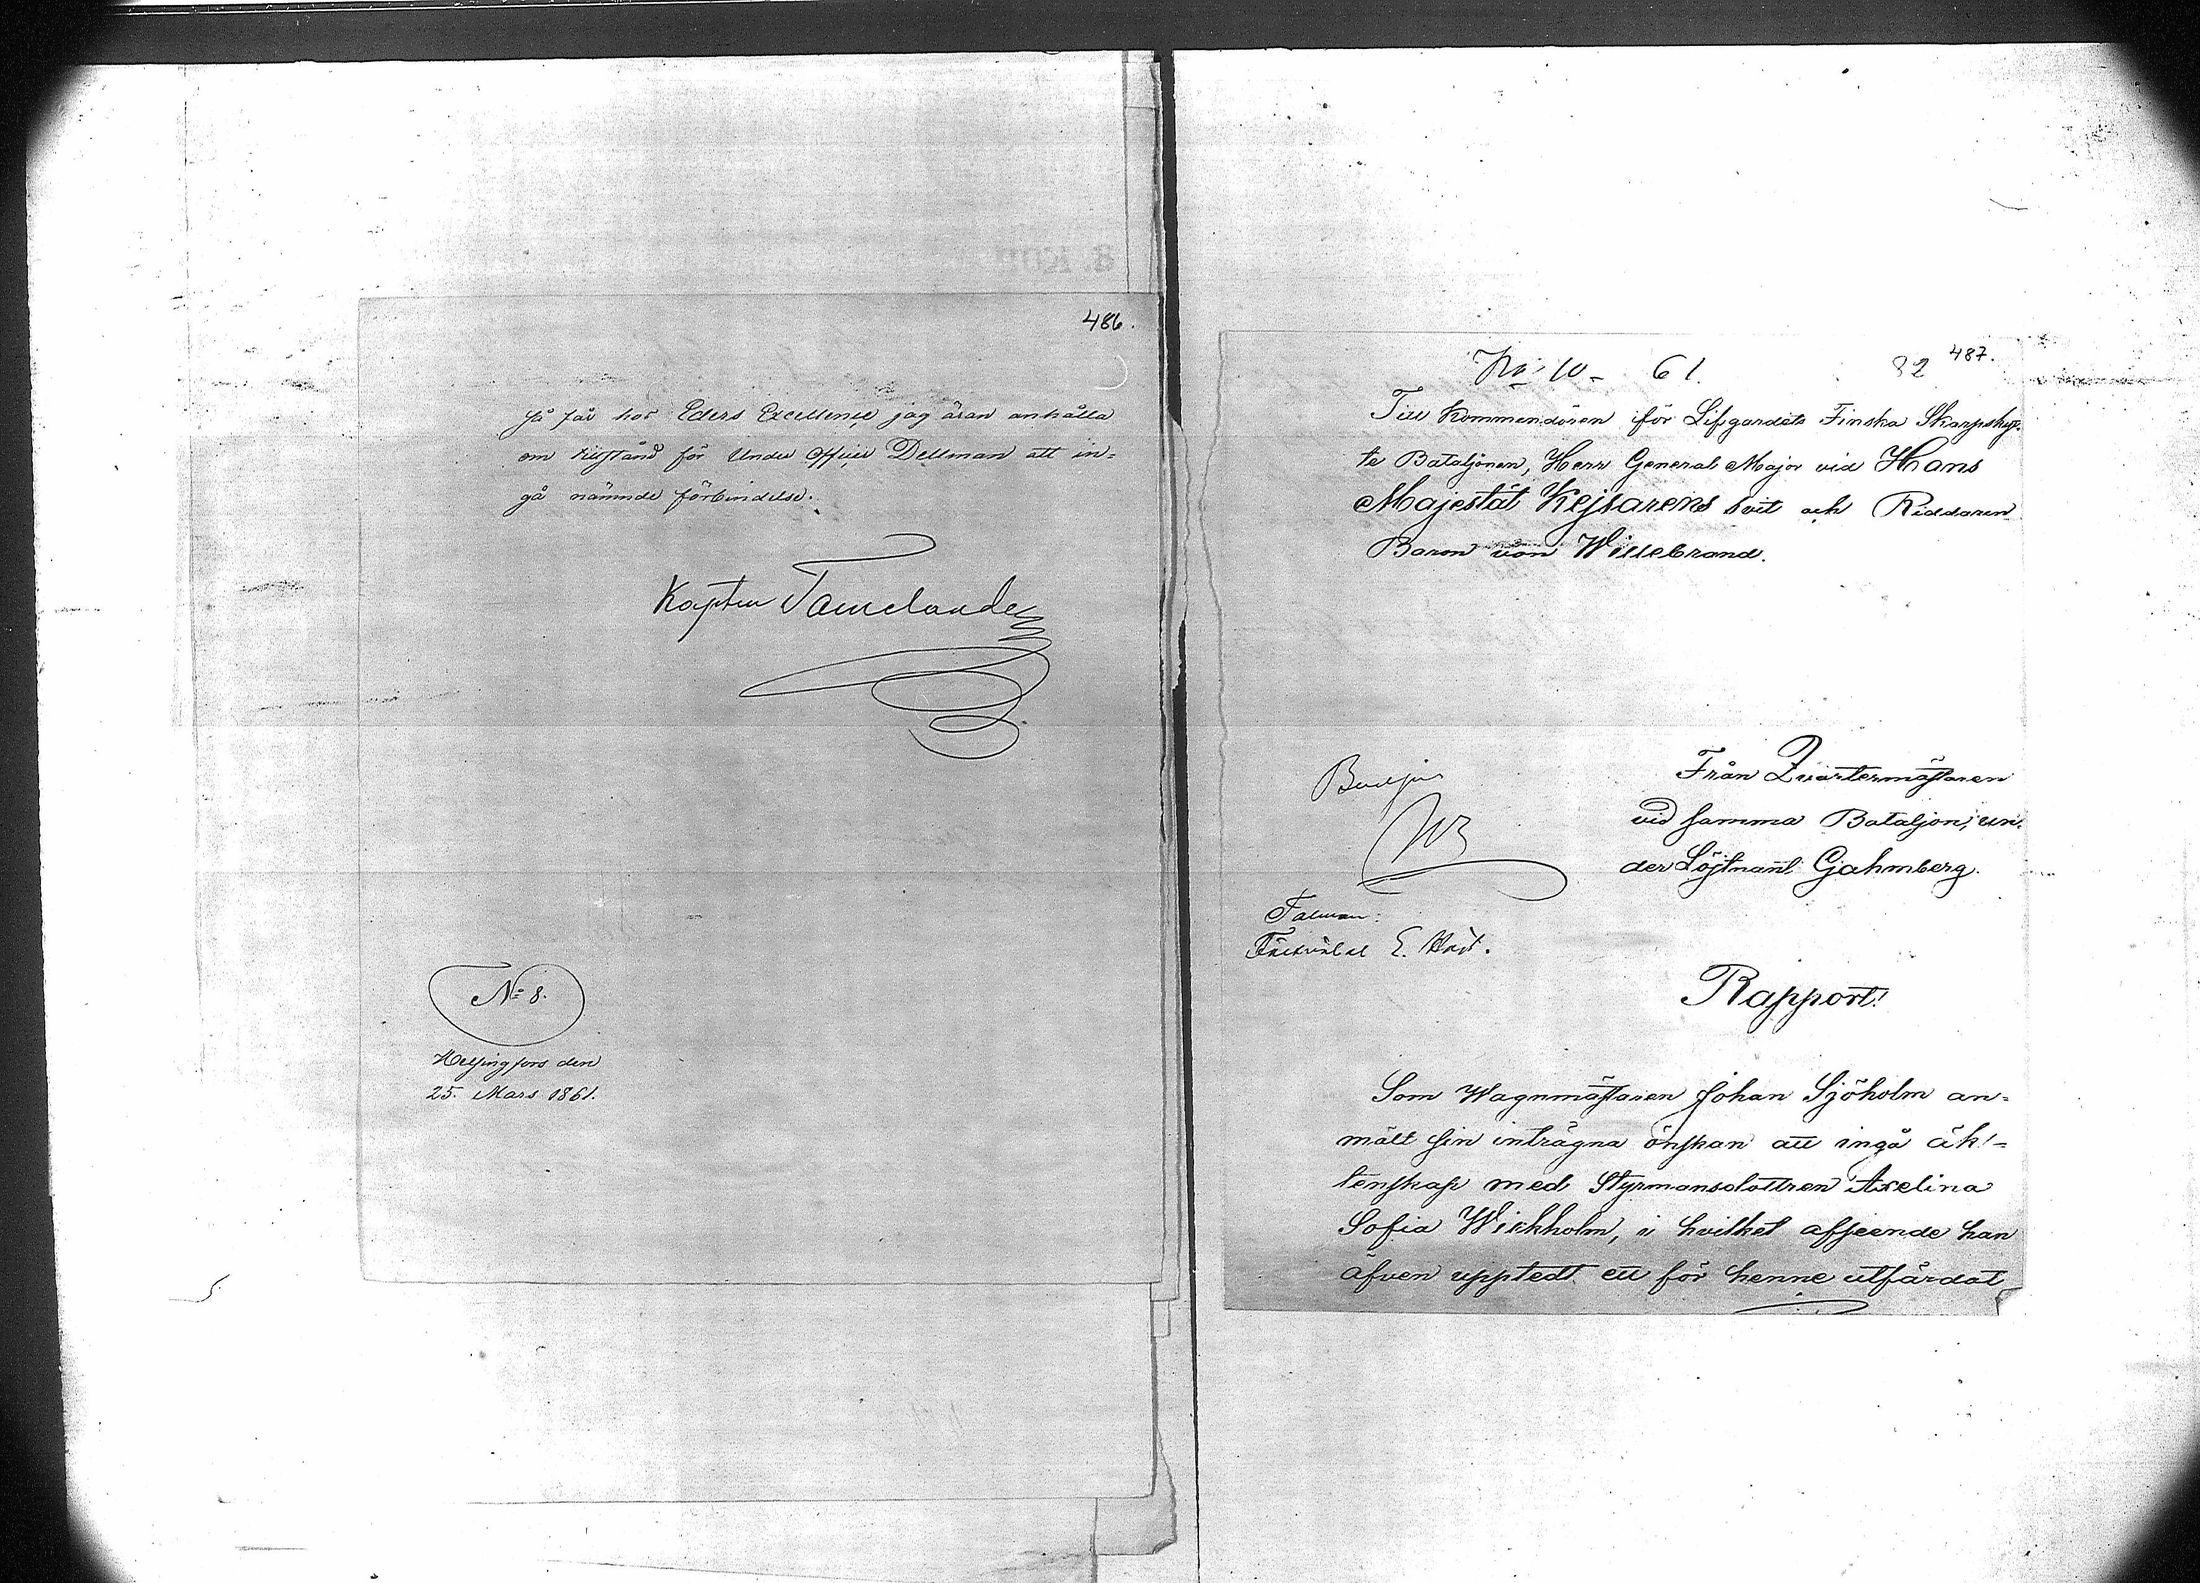 486.
så får hos Eders Excellence jag äran anhålla
om tillstånd för Under Officer Dellman att in=
gå nämnde förbindelse.
Kapten
No 8.
Helsingfors den
25. Mars 1861.
487.
No 10 - 61. 82
Till Kommendören för Lifgardets Finska Skarpskyt-
te Bataljonen, Herr General Major vid Hans
Majestät Kejsarens svit och Riddaren
Baron von Willebrand.
Från Qvartermästaren
vid samma Bataljon, un-
der Löjtnant Gahmberg.
Beviljas
Rapport!
Som Wagnmästaren Johan Sjöholm an=
mält sin inträgna önskan att ingå äk=
tenskap med Styrmansdottren Axelina
Sofia Wickholm, i hvilket afseende han
äfven upptedt ett för henne utfärdat